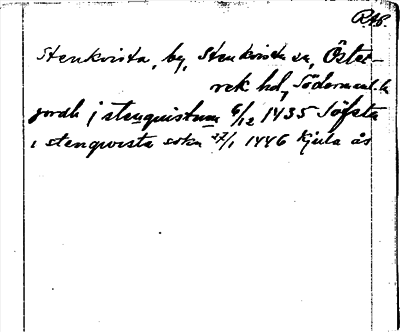 R.48.
Stenkvista, by, Stenkvista sn, Öster-
rek hd, Södermanl. l.
jordh j stenquistum 6/12 1435 Söfsta
i stenqwista sokn 27/1 1446 Kjula ås